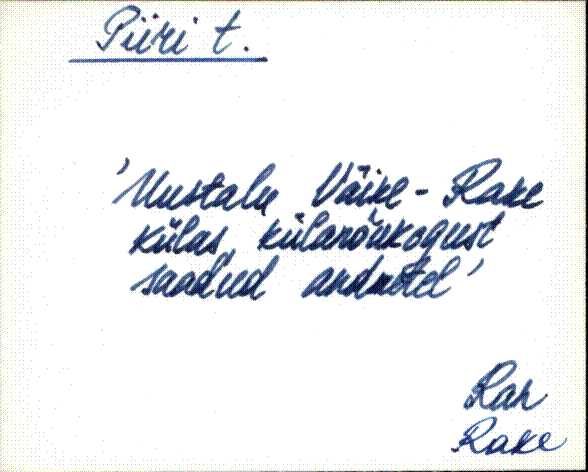 Piiri t.
'Uustalu Väike-Rake
külas, külanõukogust
saadud andmetel'
Ran
Rake